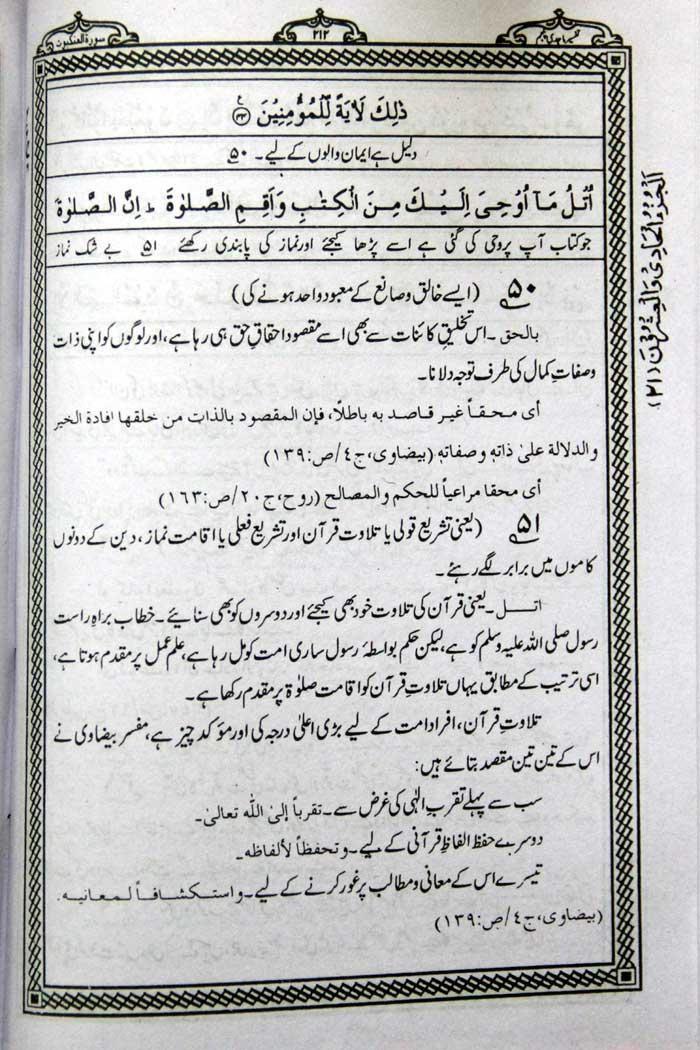 تفسیر ماجدی پنجم
۲۱۲
سورة العنکبوت
ذٰلِكَ لَاٰیَةً لِّلْمُؤْمِنِیْنَ ﴿۴۴﴾
دلیل ہے ایمان والوں کے لیے۔ ۵۰
اُتْلُ مَاۤ اُوْحِیَ اِلَیْكَ مِنَ الْكِتٰبِ وَاَقِمِ الصَّلٰوةَ ؕ اِنَّ الصَّلٰوةَ
جو کتاب آپ پر وحی کی گئی ہے اسے پڑھا کیجئے اور نماز کی پابندی رکھئے ۵۱ بے شک نماز
۵۰ (ایسے خالق و صانع کے معبود واحد ہونے کی)
بالحق۔ اس تخلیقِ کائنات سے بھی اسے مقصود احقاقِ حق ہی رہا ہے، اور لوگوں کو اپنی ذات
وصفاتِ کمال کی طرف توجہ دلانا۔
أی محقاً غیر قاصد به باطلا، فإن المقصود بالذات من خلقها افادة الخیر
والدلالة علیٰ ذاته وصفاته (بیضاوی،ج٤/ص:١٣٩)
أی محقا مراعیاً للحکم والمصالح (روح،ج٢٠/ص:١٦٣)
۵۱ (یعنی تشریع قولی یا تلاوت قرآن اور تشریع فعلی یا اقامت نماز، دین کے دونوں
کاموں میں برابر لگے رہئے۔
اتل۔ یعنی قرآن کی تلاوت خود بھی کیجئے اور دوسروں کو بھی سنائیے۔ خطاب براہِ راست
رسول صلی اللہ علیہ وسلم کو ہے، لیکن حکم بواسطۂ رسول ساری امت کو مل رہا ہے، علم عمل پر مقدم ہوتا ہے،
اسی ترتیب کے مطابق یہاں تلاوتِ قرآن کو اقامت صلوٰۃ پر مقدم رکھا ہے۔
تلاوتِ قرآن، افراد امت کے لیے بڑی اعلیٰ درجہ کی اور مؤکد چیز ہے، مفسر بیضاوی نے
اس کے تین تین مقصد بتائے ہیں:
سب سے پہلے تقربِ الٰہی کی غرض سے۔ تقرباً إلیٰ الله تعالیٰ۔
دوسرے حفظ الفاظِ قرآنی کے لیے۔ وتحفظاً لألفاظه۔
تیسرے اس کے معانی و مطالب پر غور کرنے کے لیے۔ واستکشافاً لمعانیه.
(بیضاوی،ج٤/ص:١٣٩)
اَلْجُزْءُ الْحَادِیْ وَالْعِشْرُوْنَ (۲۱)